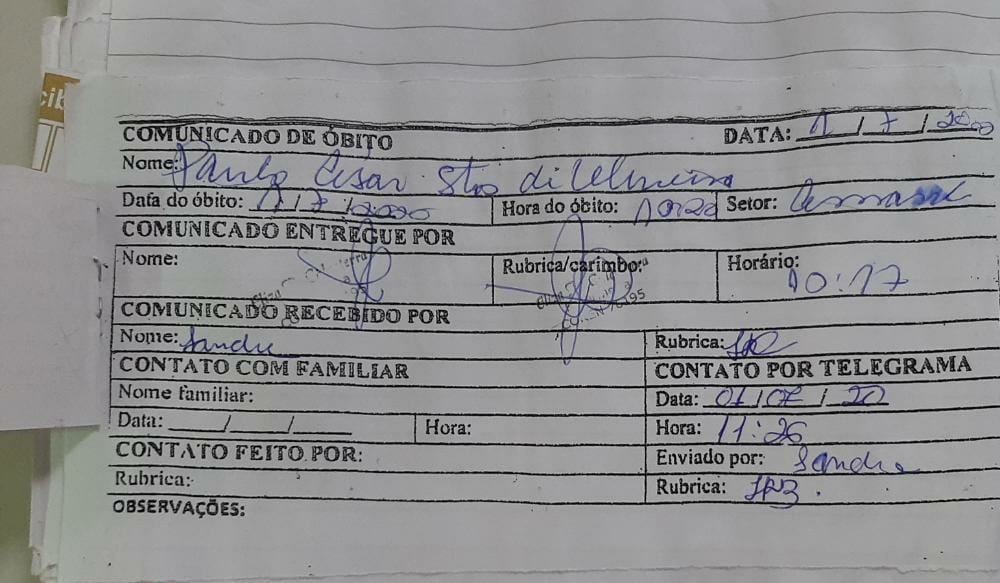 COMUNICADO DE ÓBITO DATA: 1 / 7 / 2020
Nome: Paulo César Stos de
Data do óbito: 1 / 7 / 2020 Hora do óbito: Setor:
COMUNICADO ENTREGUE POR
Nome: Rubrica/carimbo: Horário:
10:17
COMUNICADO RECEBIDO POR
Nome: Sandra Rubrica:
CONTATO COM FAMILIAR CONTATO POR TELEGRAMA
Nome familiar: Data: 01 / 07 / 20
Data: / / Hora: Hora: 11:26
CONTATO FEITO POR: Enviado por: Sandra
Rubrica: Rubrica:
OBSERVAÇÕES: